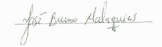 José Bueno Malaquias